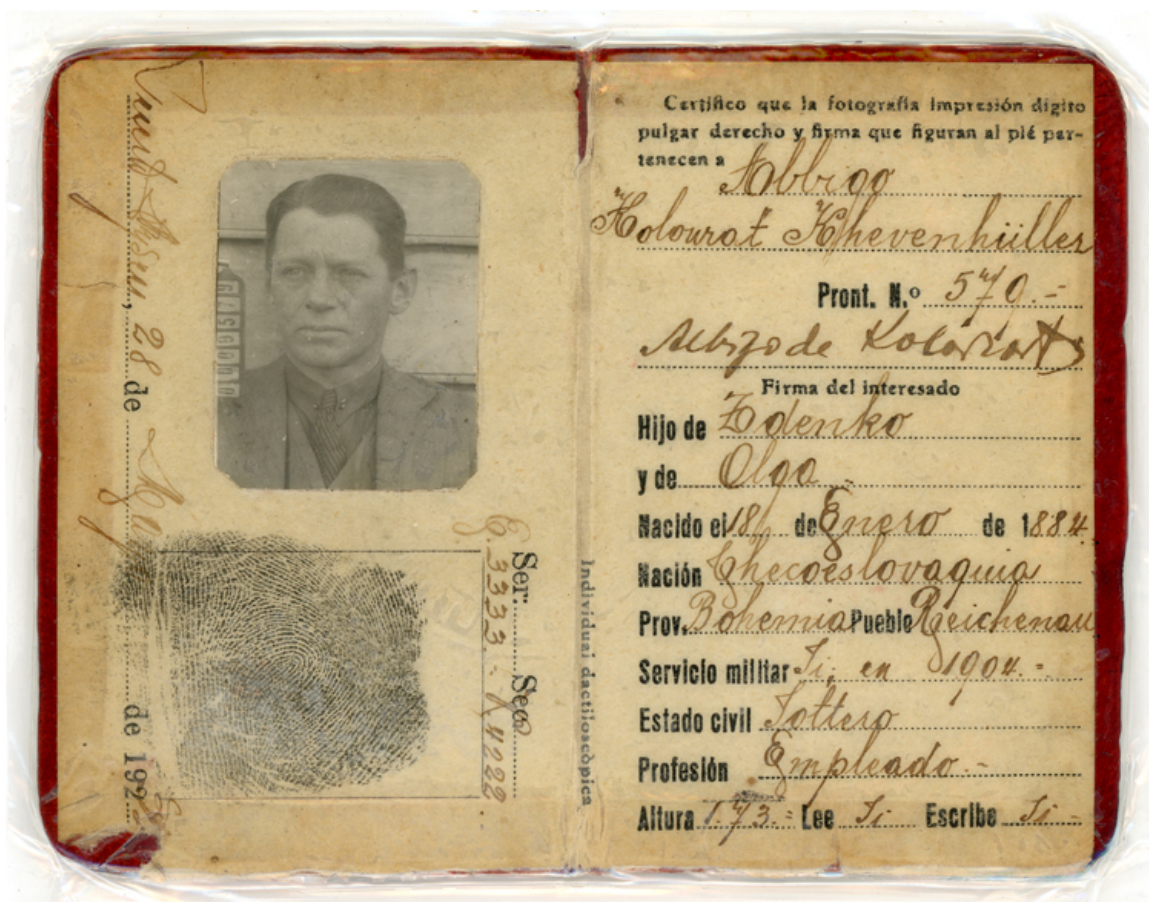 28 de
de 192
Ser. Sec.
E.3333 - 4222
Individual dactiloscópica
Certifico que la fotografía impresión digito
pulgar derecho y firma que figuran al pié per-
tenecen a Abbigo
Kolowrat Khevenhüller
Pront. N.º 579.-
de
Firma del interesado
Hijo de Zdenko
y de Olga
Nacido el 18 de Enero de 1884
Nación Checoeslovaquia
Prov. Bohemia Pueblo Reichenau
Servicio militar Si, en 1904.-
Estado civil Soltero
Profesión Empleado.-
Altura 1.73.- Lee Si Escribe Si-